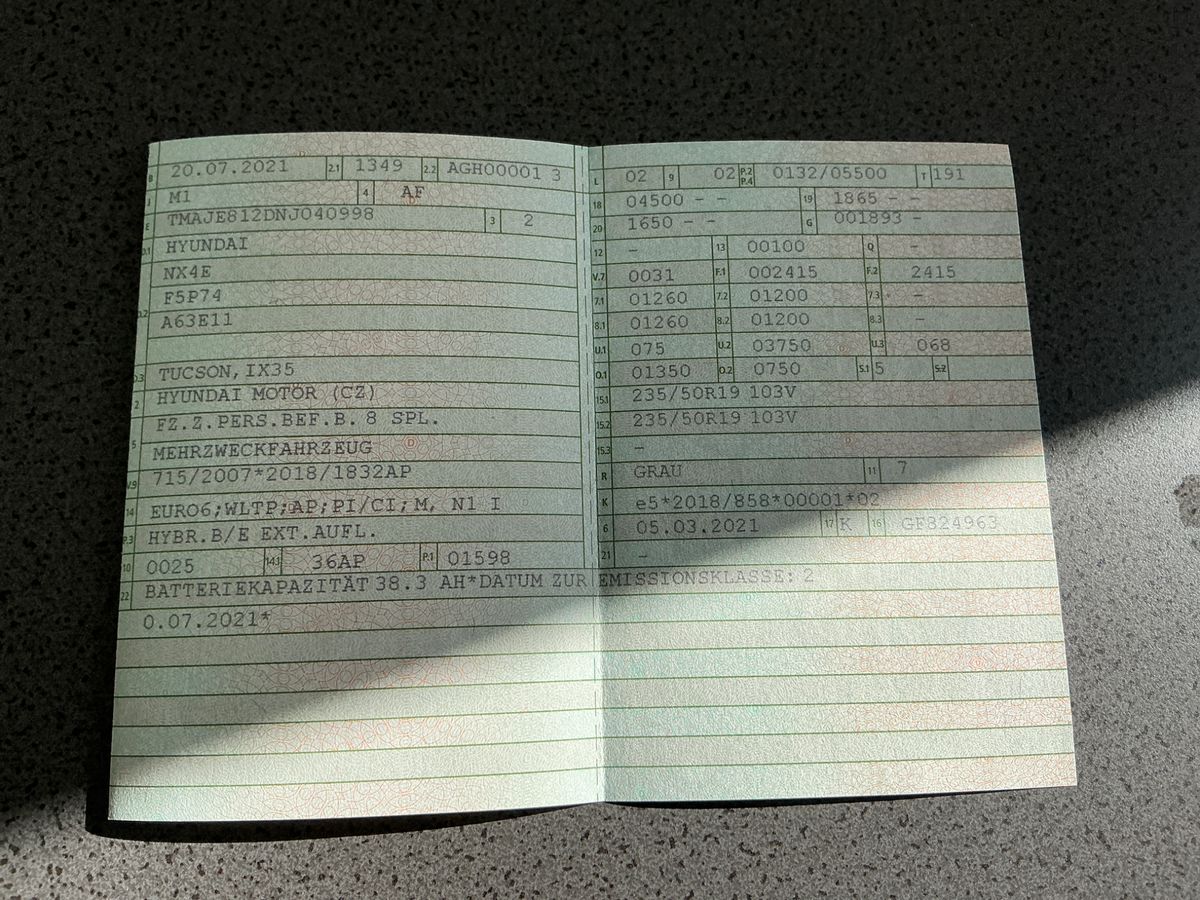 B 20.07.2021 2.1 1349 2.2 AGH00001 3
J M1 4 AF
E TMAJE812DNJ040998 3 2
D.1 HYUNDAI
NX4E
D.2 F5P74
A63E11
D.3 TUCSON,IX35
2 HYUNDAI MOTOR (CZ)
FZ.Z.PERS.BEF.B. 8 SPL.
5 MEHRZWECKFAHRZEUG
V.9 715/2007*2018/1832AP
14 EURO6;WLTP;AP;PI/CI;M, N1 I
P.3 HYBR.B/E EXT.AUFL.
10 0025 14.1 36AP P.1 01598
L 02 9 02 P.2 P.4 0132/05500 T 191
18 04500 - - 19 1865 - -
20 1650 - - G 001893 -
12 - 13 00100 Q -
V.7 0031 F.1 002415 F.2 2415
7.1 01260 7.2 01200 7.3 -
8.1 01260 8.2 01200 8.3 -
U.1 075 U.2 03750 U.3 068
O.1 01350 O.2 0750 S.1 5 S.2
15.1 235/50R19 103V
15.2 235/50R19 103V
15.3 -
R GRAU 11 7
K e5*2018/858*00001*02
6 05.03.2021 17 K 16 GF824963
21 -
22 BATTERIEKAPAZITÄT 38.3 AH*DATUM ZUR EMISSIONSKLASSE: 2
0.07.2021*